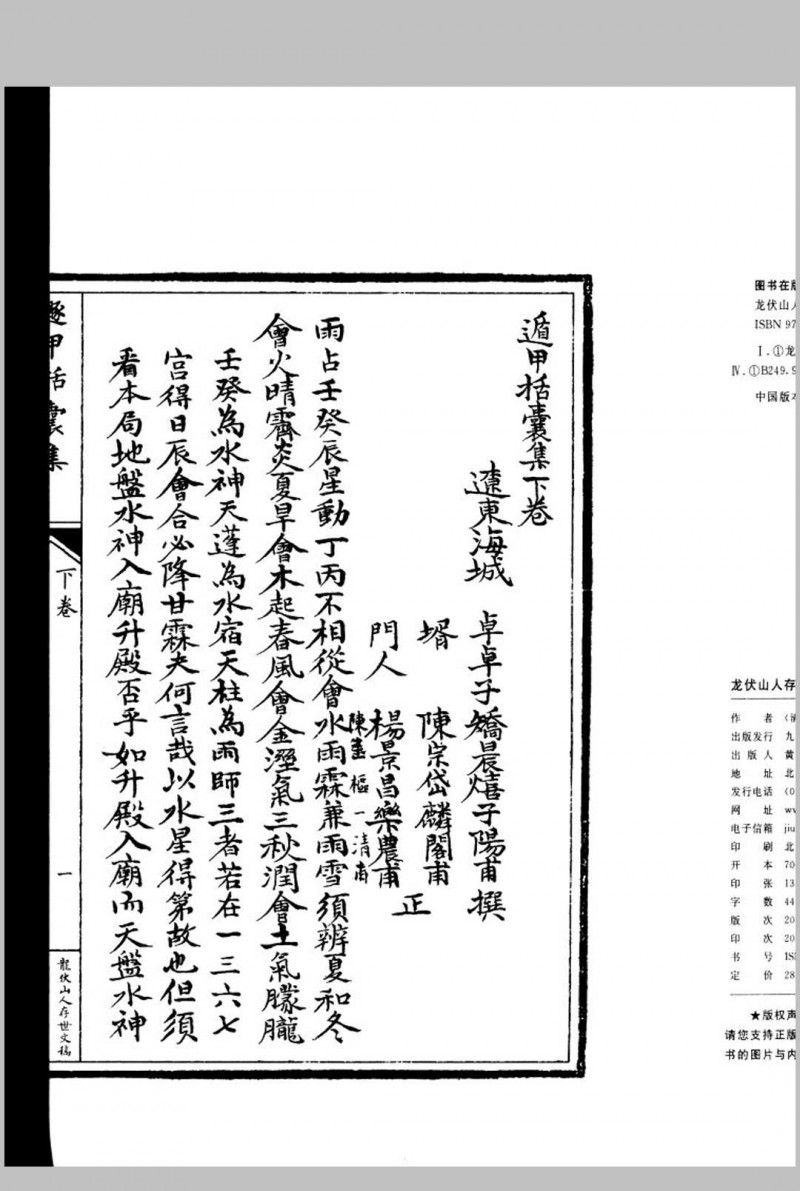 遁甲括囊集下卷
遼東海城 卓卓子矯晨熺子陽甫撰
壻 陳宗岱麟閣甫
門人 楊景昌樂農甫 正
陳 樞一清甫
雨占壬癸辰星動丁丙不相從會水雨霖兼雨雪須辨夏和冬
會火晴霽炎夏旱會木起春風會金溼氣三秋潤會土氣朦朧
壬癸為水神天蓬為水宿天柱為雨師三者若在一三六七
宮得日辰會合必降甘霖夫何言哉以水星得第故也但須
看本局地盤水神入廟升殿否乎如升殿入廟而天盤水神
遯甲括囊集
下卷
一
龍伏山人存世文稿
图书在版
龙伏山人
ISBN 97
Ⅰ.①龙
Ⅳ.①B249.9
中国版本
龙伏山人存
作 者 （清
出版发行 九
出 版 人 黄
地 址 北
发行电话 （0
网 址 ww
电子信箱 jiu
印 刷 北
开 本 70
印 张 13
字 数 44
版 次 20
印 次 20
书 号 IS
定 价 28
★版权声
请您支持正版
书的图片与内